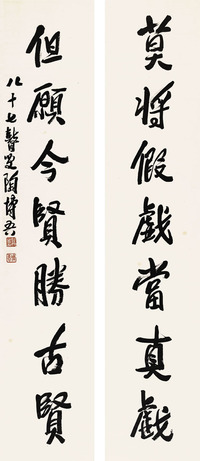 莫將假戲當真戲
但願今賢勝古賢
八十七瞽叟陶博吾